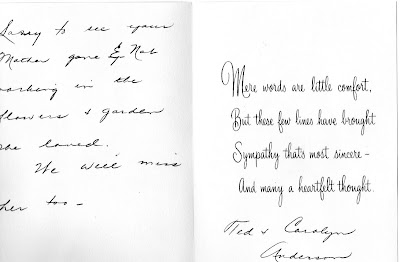 Sorry to see your
Mother gone & Not
working in the
flowers & garden
she loved.
We will miss
her too -
Mere words are little comfort,
But these few lines have brought
Sympathy that's most sincere –
And many a heartfelt thought.
Ted & Carolyn
Anderson